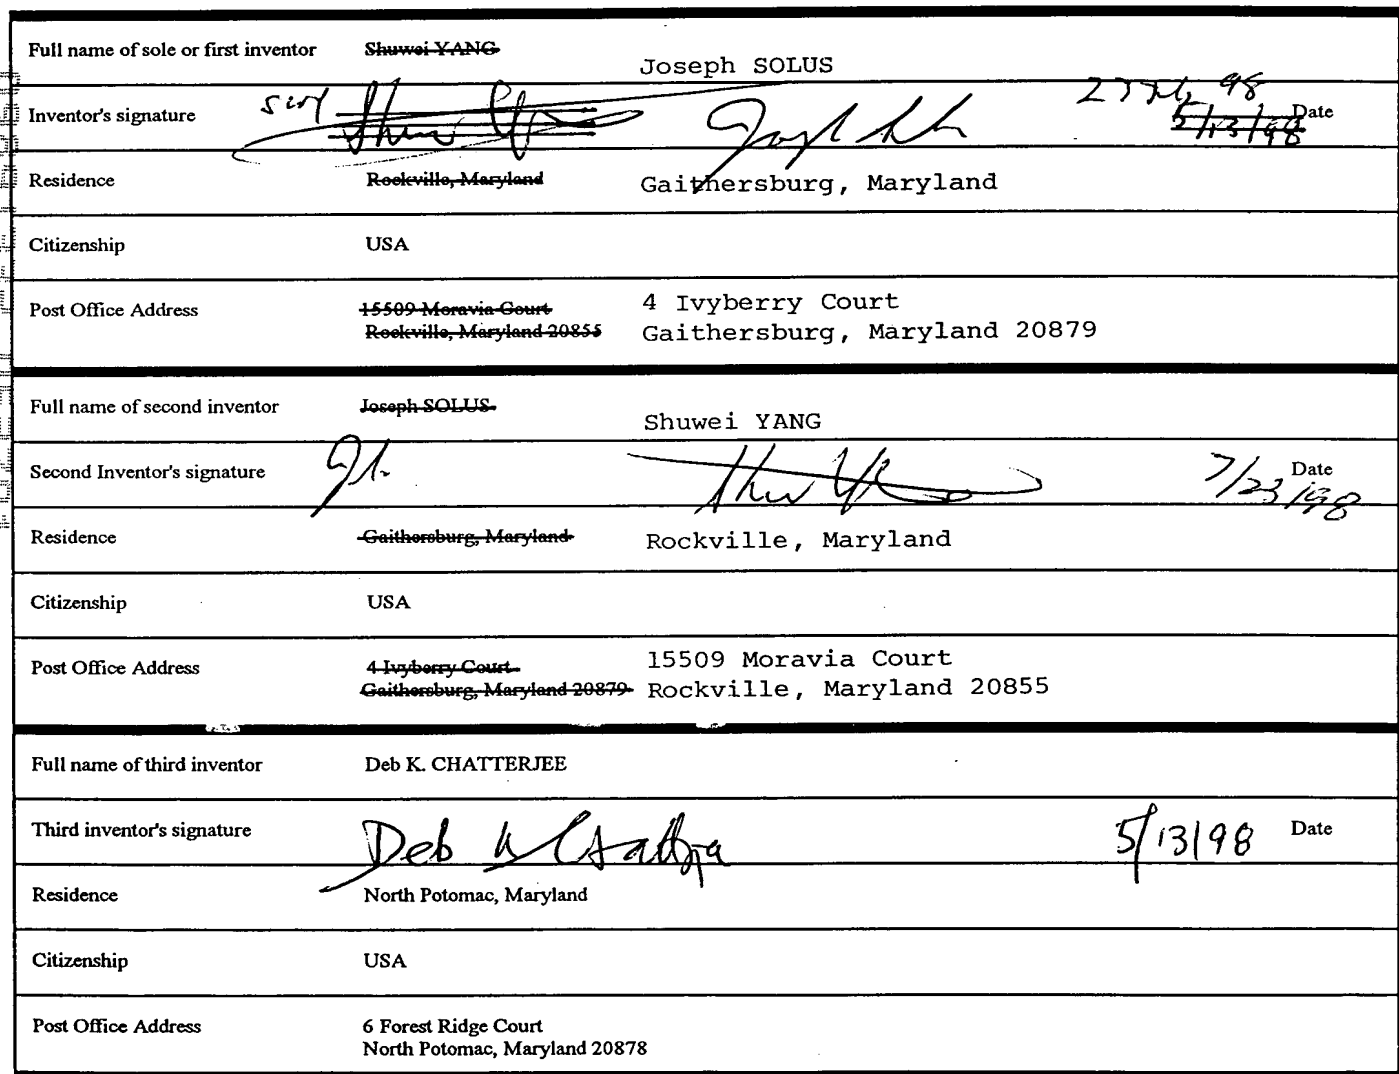 Full name of sole or first inventor Shuwei YANG
Joseph SOLUS
Inventor's signature 5/13/98 Date
Residence Rockville, Maryland Gaithersburg, Maryland
Citizenship USA
Post Office Address 15509 Moravia Court 4 Ivyberry Court
Rockville, Maryland 20855 Gaithersburg, Maryland 20879
Full name of second inventor Joseph SOLUS
Shuwei YANG
Second Inventor's signature 7/23/98 Date
Residence Gaithersburg, Maryland Rockville, Maryland
Citizenship USA
Post Office Address 4 Ivyberry Court 15509 Moravia Court
Gaithersburg, Maryland 20879 Rockville, Maryland 20855
Full name of third inventor Deb K. CHATTERJEE
Third inventor's signature Deb K 5/13/98 Date
Residence North Potomac, Maryland
Citizenship USA
Post Office Address 6 Forest Ridge Court
North Potomac, Maryland 20878